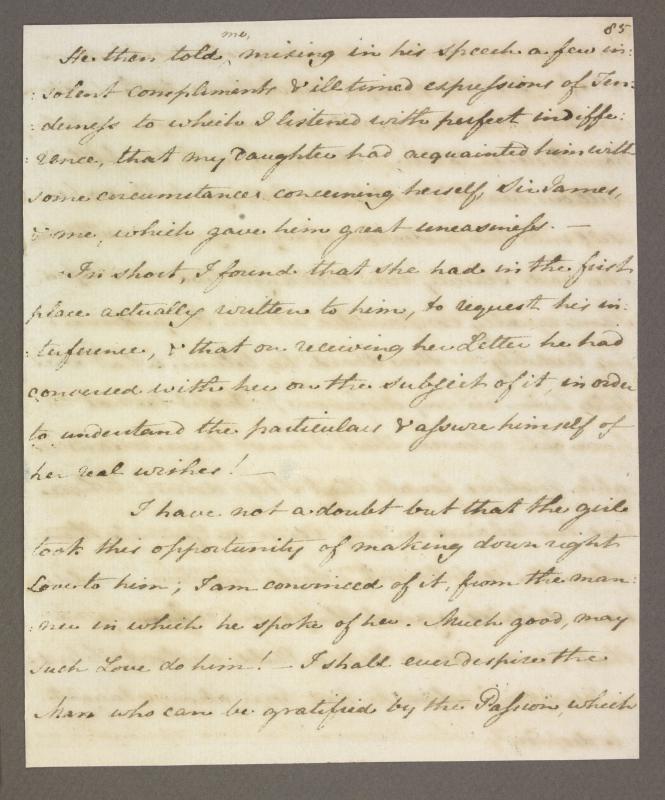 85
He then told me, mixing in his speech a few in:
:solent compliments & illtimed expressions of Ten:
:derness to which I listened with perfect indiffe:
:rence, that my Daughter had acquainted him with
some circumstances concerning herself, Sir James,
& me, which gave him great uneasiness. —
In short, I found that she had in the first
place actually written to him, to request his in:
:terference, & that on receiving her Letter he had
conversed with her on the subject of it, in order
to understand the particulars & assure himself of
her real wishes! —
I have not a doubt but that the girl
took this opportunity of making downright
Love to him; I am convinced of it, from the man:
:ner in which he spoke of her. Much good, may
such Love do him! — I shall ever despise the
Man who can be gratified by the Passion, which